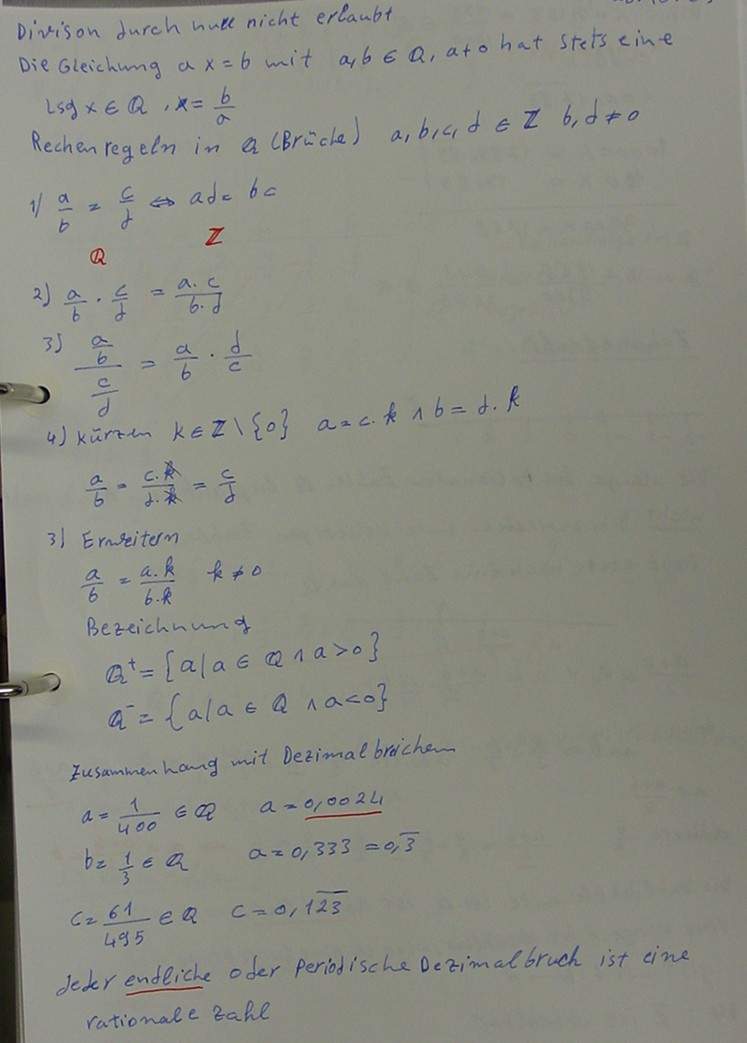 Divison durch null nicht erlaubt
Die Gleichung a x = b mit a,b ∈ Q, a≠0 hat stets eine
Lsg x ∈ Q , x = b/a
Rechenregeln in Q (Brüche) a,b,c,d ∈ Z b,d ≠ 0
1) a/b = c/d ⇔ ad = bc
Q Z
2) a/b · c/d = a·c/b·d
3) (a/b)/(c/d) = a/b · d/c
4) Kürzen k ∈ Z \ {0} a = c·k ∧ b = d·k
a/b = c·k/d·k = c/d
3) Erweitern
a/b = a·k/b·k k ≠ 0
Bezeichnung
Q⁺ = {a/a ∈ Q ∧ a>0}
Q⁻ = {a/a ∈ Q ∧ a<0}
Zusammenhang mit Dezimalbrüchen
a = 1/400 ∈ Q a = 0,0024
b = 1/3 ∈ Q a = 0,333 = 0,3̅
c = 61/495 ∈ Q c = 0,12̅3̅
Jeder endliche oder Periodische Dezimalbruch ist eine
rationale Zahl